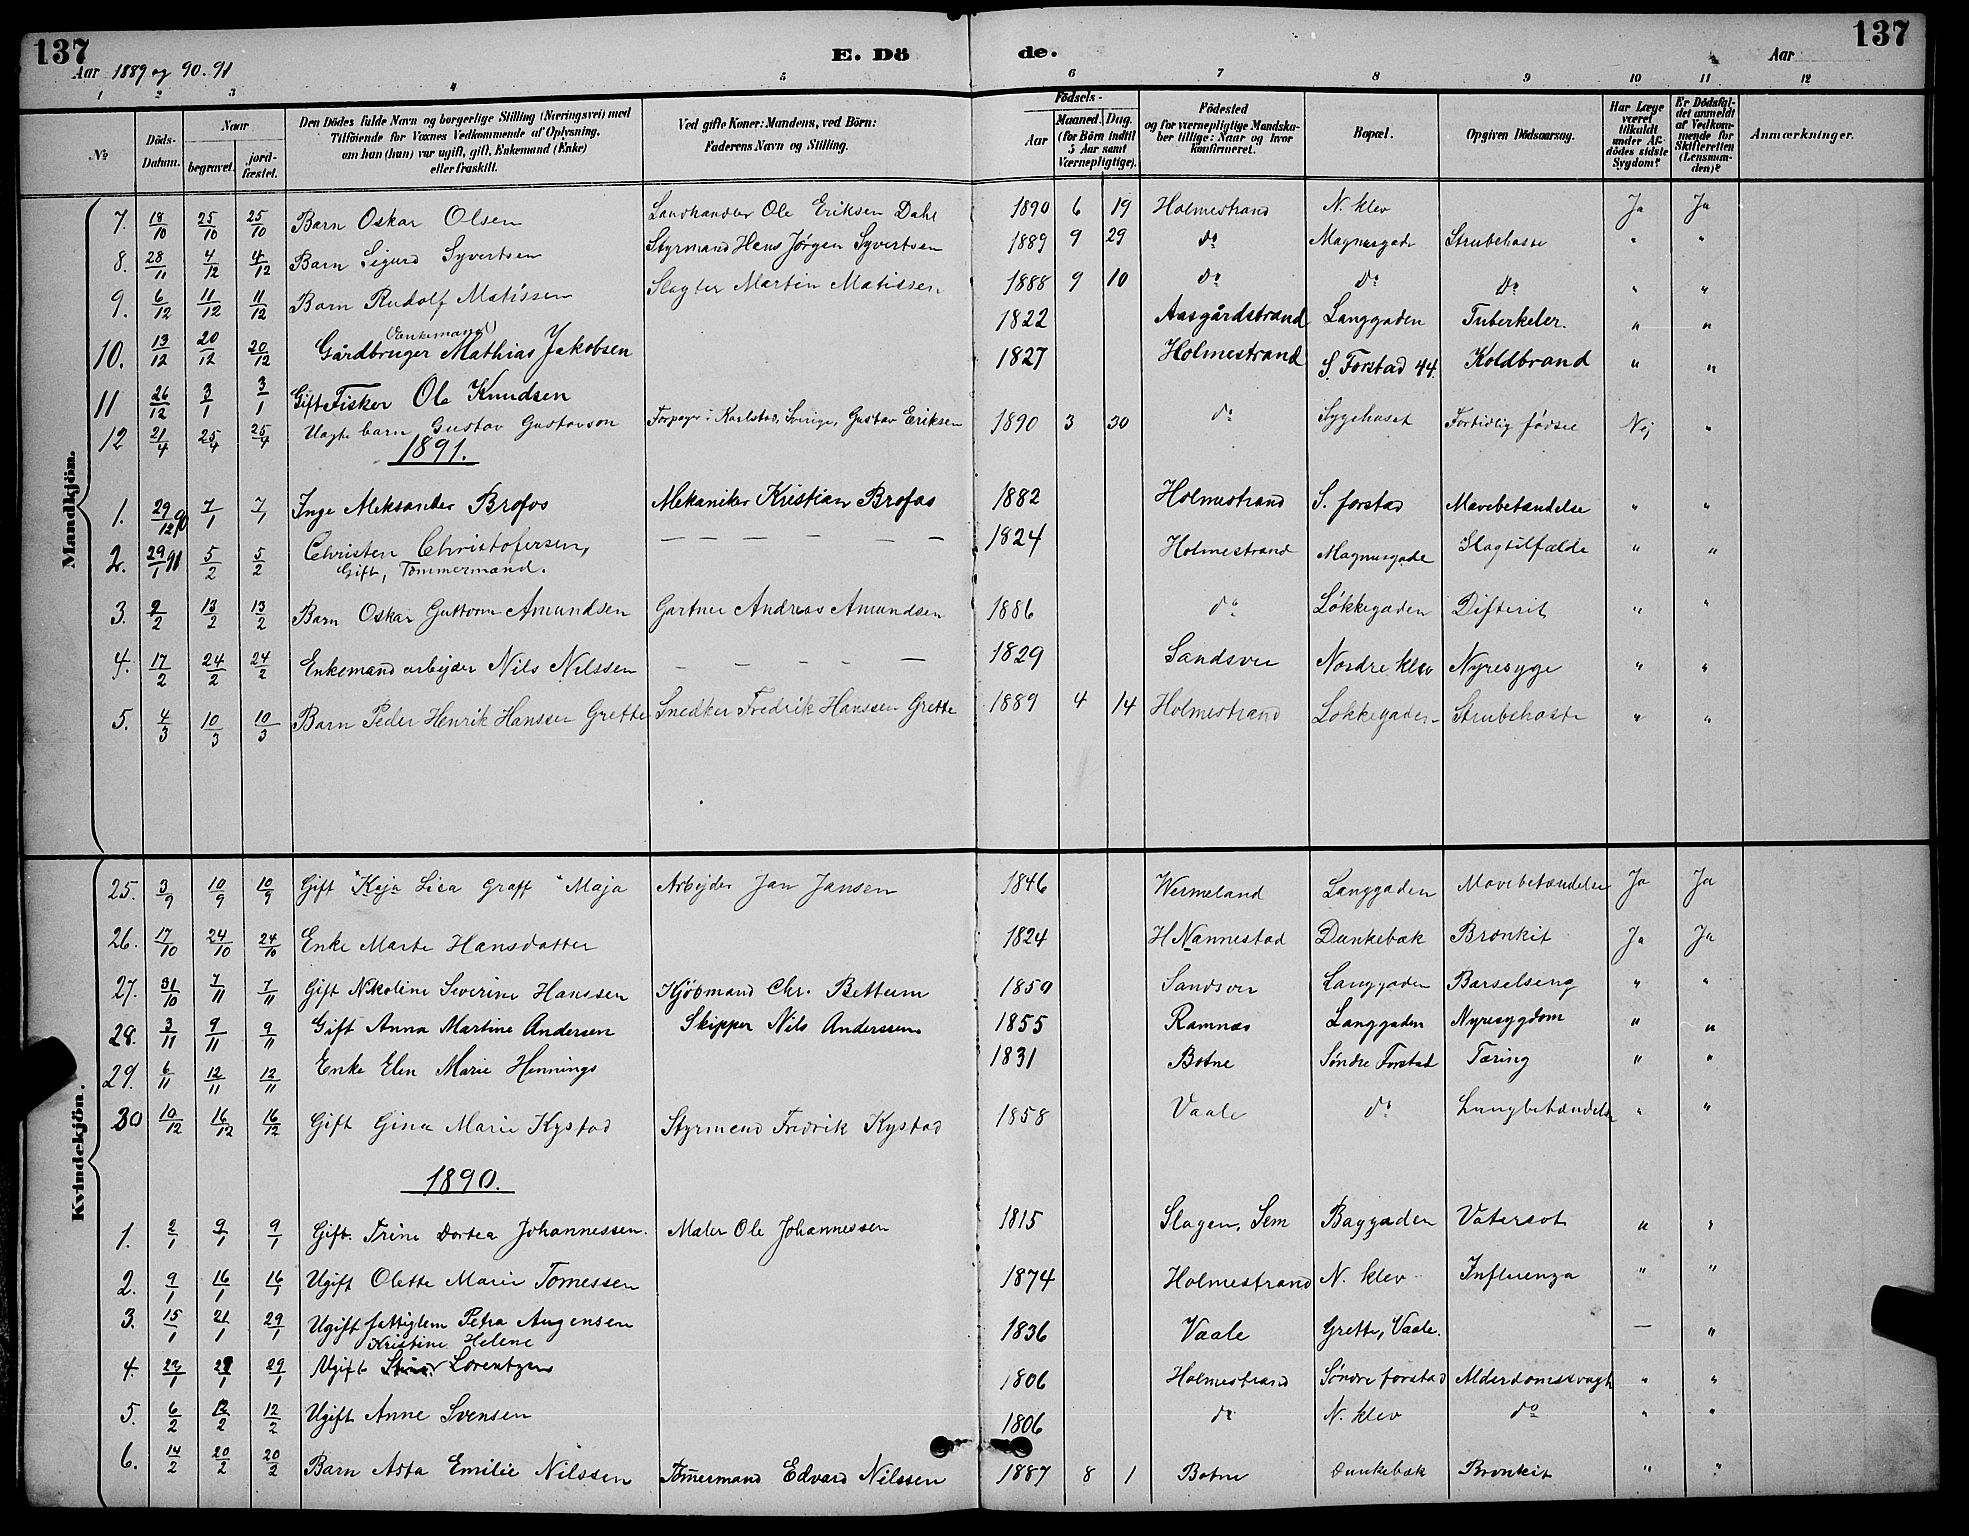 137 E. Dö de. 137
Aar 1889 og 90. 91 Aar
1 2 3 4 5 6 7 8 9 10 11 12
No. Döds-Datum. Naar begravet. jordfæstet. Den Dödes fulde Navn og borgerlige Stilling (Næringsvei) med Tilföiende for Voxnes Vedkommende af Oplysning, om han (hun) var ugift, gift, Enkemand (Enke) eller fraskilt. Ved gifte Koner: Mandens, ved Börn: Faderens Navn og Stilling. Födsels- Aar Maaned. Dag. (for Börn indtil 5 Aar samt Værnepligtige). Födested og for værnepligtige Mandskaber tillige: Naar og hvor konfirmeret. Bopæl. Opgiven Dödsaarsag. Har Læge været tilkaldt under Afdödes sidste Sygdom? Er Dödsfaldet anmeldt af Vedkommende for Skifteretten (Lensmanden)? Anmærkninger.
Mandkjön.
7. 18/10 25/10 25/10 Barn Oskar Olsen Landhandler Ole Eriksen Dahl 1890 6 19 Holmestrand N. klev Ja Ja
8. 28/11 4/12 4/12 Barn Sigurd Syvertsen Styrmand Hans Jörgen Syvertsen 1889 9 29 do Magnusgade Strubehoste " "
9. 6/12 11/12 11/12 Barn Rudolf Matissen Slagter Martin Matissen 1888 9 10 do do do " "
10. 13/12 20/12 20/12 (Enkemand) Gårdbruger Mathias Jakobsen 1822 Aasgårdstrand Langgaden Tuberkeler. " "
11 26/12 3/1 3/1 Gift Fisker Ole Knudsen 1827 Holmestrand S. Forstad 44. Koldbrand " "
12 21/4 25/4 25/4 Uægte barn Gustav Gustavson i Karlstad, Sverige, Gustav Eriksen 1890 3 30 do Sygehuset Fortidlig födsel Nej "
1891.
1. 29/12 90 7/1 7/1 Inge Aleksander Brofos Mekaniker Kristian Brofos 1882 Holmestrand S. forstad Mavebetændelse " "
2. 29/1 91 5/2 5/2 Christen Christofersen, 1824 Holmestrand Magnusgade Slagtilfælde " "
Gift, Tømmermand.
3. 9/2 13/2 13/2 Barn Oskar Guttorm Amundsen Gartner Andreas Amundsen 1886 do Lökkegaden Difterit " "
4. 17/2 24/2 24/2 Enkemand arbejder Nils Nilssen 1829 Sandsver Nordre klev Nyresyge " "
5. 4/3 10/3 10/3 Barn Peder Henrik Hanssen Grette Snedker Fredrik Hanssen Grette 1889 4 14 Holmestrand Løkkegaden Strubehoste " "
Kvindekjön.
25. 3/9 10/9 10/9 Gift "Kaja Lisa Graff" Maja Arbejder Jan Jansen 1846 Wermeland Langgaden Mavebetændelse Ja Ja
26. 17/10 24/10 24/10 Enke Marte Hansdatter 1824 H Nannestad Dunkebæk Bronkit Ja Ja
27. 31/10 7/11 7/11 Gift Nikoline Severine Hanssen Kjöbmand Chr. Bettum 1850 Sandsver Langgaden Barselseng " "
28. 3/11 9/11 9/11 Gift Anna Martine Andersen Skipper Nils Anderssen 1855 Ramnæs Langgaden Nyresygdom " "
29. 6/11 12/11 12/11 Enke Elen Marie Hennings 1831 Botne Söndre Forstad Tæring " "
30 10/12 16/12 16/12 Gift Gina Marie Kystad Styrmand Fredrik Kystad 1858 Vaale do Lungbetændelse " "
1890.
1. 2/1 9/1 9/1 Gift. Trine Dortea Johannessen. Maler Ole Johannessen 1815 Slagen, Sem Baggaden Vatersot " "
2. 9/1 16/1 16/1 Ugift Olette Marie Tomessen 1874 Holmestrand N. klev Influenza " "
3. 15/1 21/1 29/1 Ugift fattiglem Petra Augensen 1836 Vaale Grette, Vaale. — "
Kristine Helene
4. 23/1 29/1 29/1 Ugift Lorentzen 1806 Holmestrand Söndre forstad Alderdomssvagh " "
5. 6/2 12/2 12/2 Ugift Anne Svensen 1806 do N. klev do " "
6. 14/2 20/2 20/2 Barn Asta Emilie Nilssen Tömmermand Edvard Nilssen 1887 8 1 Botne Dunkebæk Bronkit " "